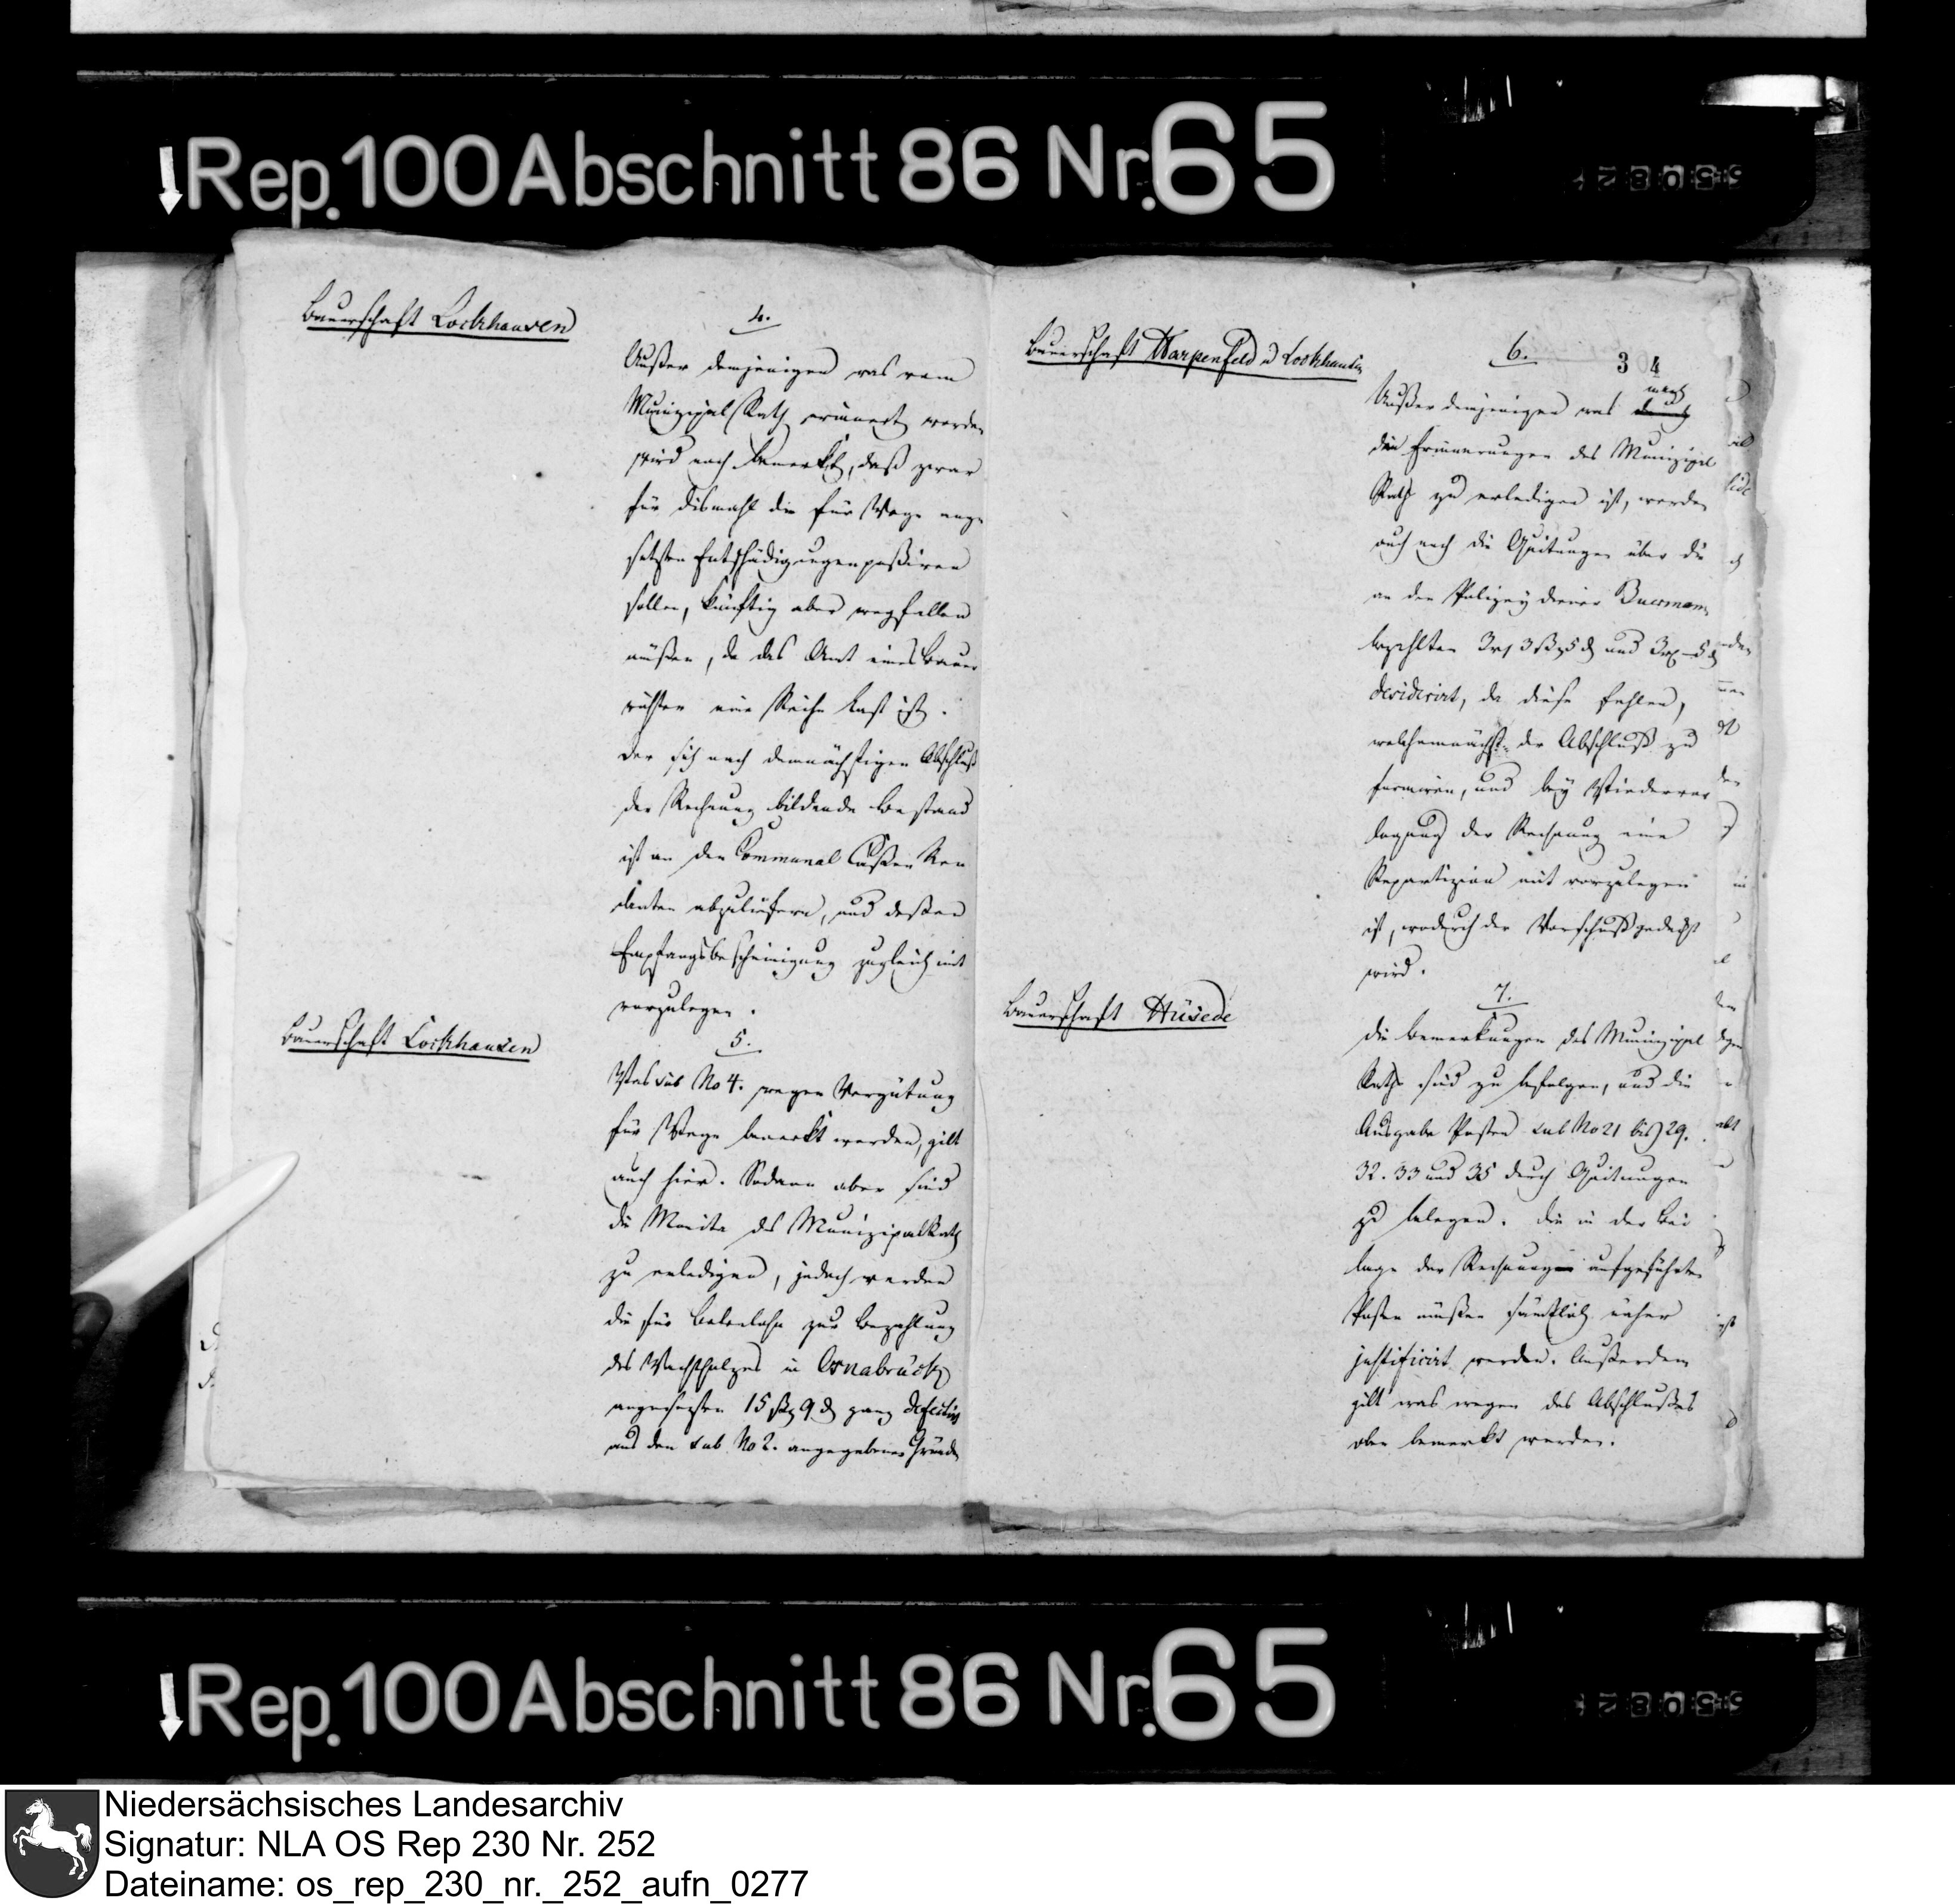 Rep. 100 Abschnitt 86 Nr. 65
Bauerschaft Lockhausen
4.
Außer demjenigen was vom
Munizipal Rath erinnert worden
wird noch bemerkt, daß zwar
für dismahl die für Wege ange
setzten Entschädigungen paßiren
sollen, künftig aber wegfallen
müßen, da das Amt eines Bauer
richter eine Reihe Last ist.
Der sich nach demnächstigen Abschluß
der Rechnung bildende Bestand
ist an den Communal Caßen Ren
danten abzuliefern, und deßen
Empfangsbescheinigung zugleich mit
vorzulegen.
Bauerschaft Lockhausen
5.
Was sub No 4. wegen Vergütung
für Wege bemerkt worden, gilt
auch hier. Sodann aber sind
die Monita des Munizipal Rath
zu erledigen, jedoch werden
die für Botenlohn zur Bezahlung
des Wachtholzes in Osnabrück
angesetzten 15 ß 9 d ganz
aus den sub No 2. angegebenen Gründen
Bauerschaft Harpenfeld u Lockhausen
6.
304
nach
Außer demjenigen was durch
den Erinnerungen des Munizipal
Raths zu erledigen ist, werden
auch noch die Quitungen über die
an den Polizey diener Buermann
bezahlten 3 rt 3 ß 5 d und 3 rt – 5 d
desiderirt, da diese fehlen,
welchemnächst der Abschluß zu
formiren, und bey Wiedervor
legung der Rechnung eine
Repartizion mit vorzulegen
ist, wodurch der Vorschuß gedeckt
wird.
Bauerschaft Hüsede
7.
Die Bemerkungen des Munizipal
Raths sind zu befolgen, und die
Ausgabe Posten sub No 21 bis 29.
32. 33 und 35 durch Quitungen
zu belegen. Die in der Bei
lage der Rechnung aufgeführten
Posten müßen sämtlich näher
justificirt werden. Außerdem
gilt was wegen des Abschlußes
oben bemerkt worden.
Rep. 100 Abschnitt 86 Nr. 65
Niedersächsisches Landesarchiv
Signatur: NLA OS Rep 230 Nr. 252
Dateiname: os_rep_230_nr._252_aufn_0277